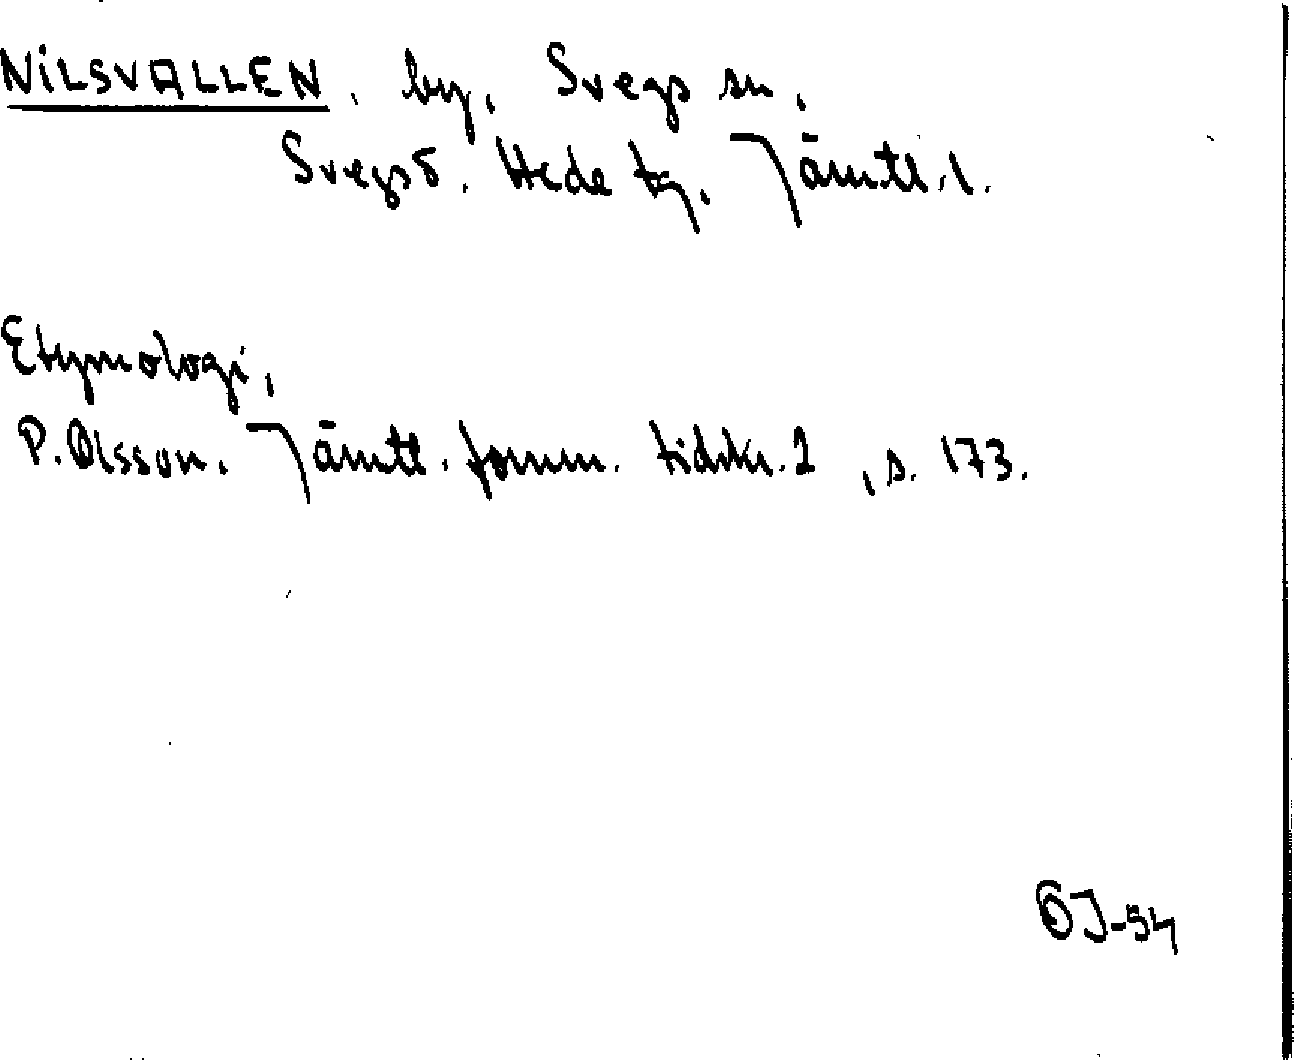 NILSVALLEN, by, Svegs sn,
Svegs d. Hede tg. Jämtl. l.
Etymologi,
P. Olsson. Jämtl. fornm. tidskr. 2, s. 173.
ÖJ-54